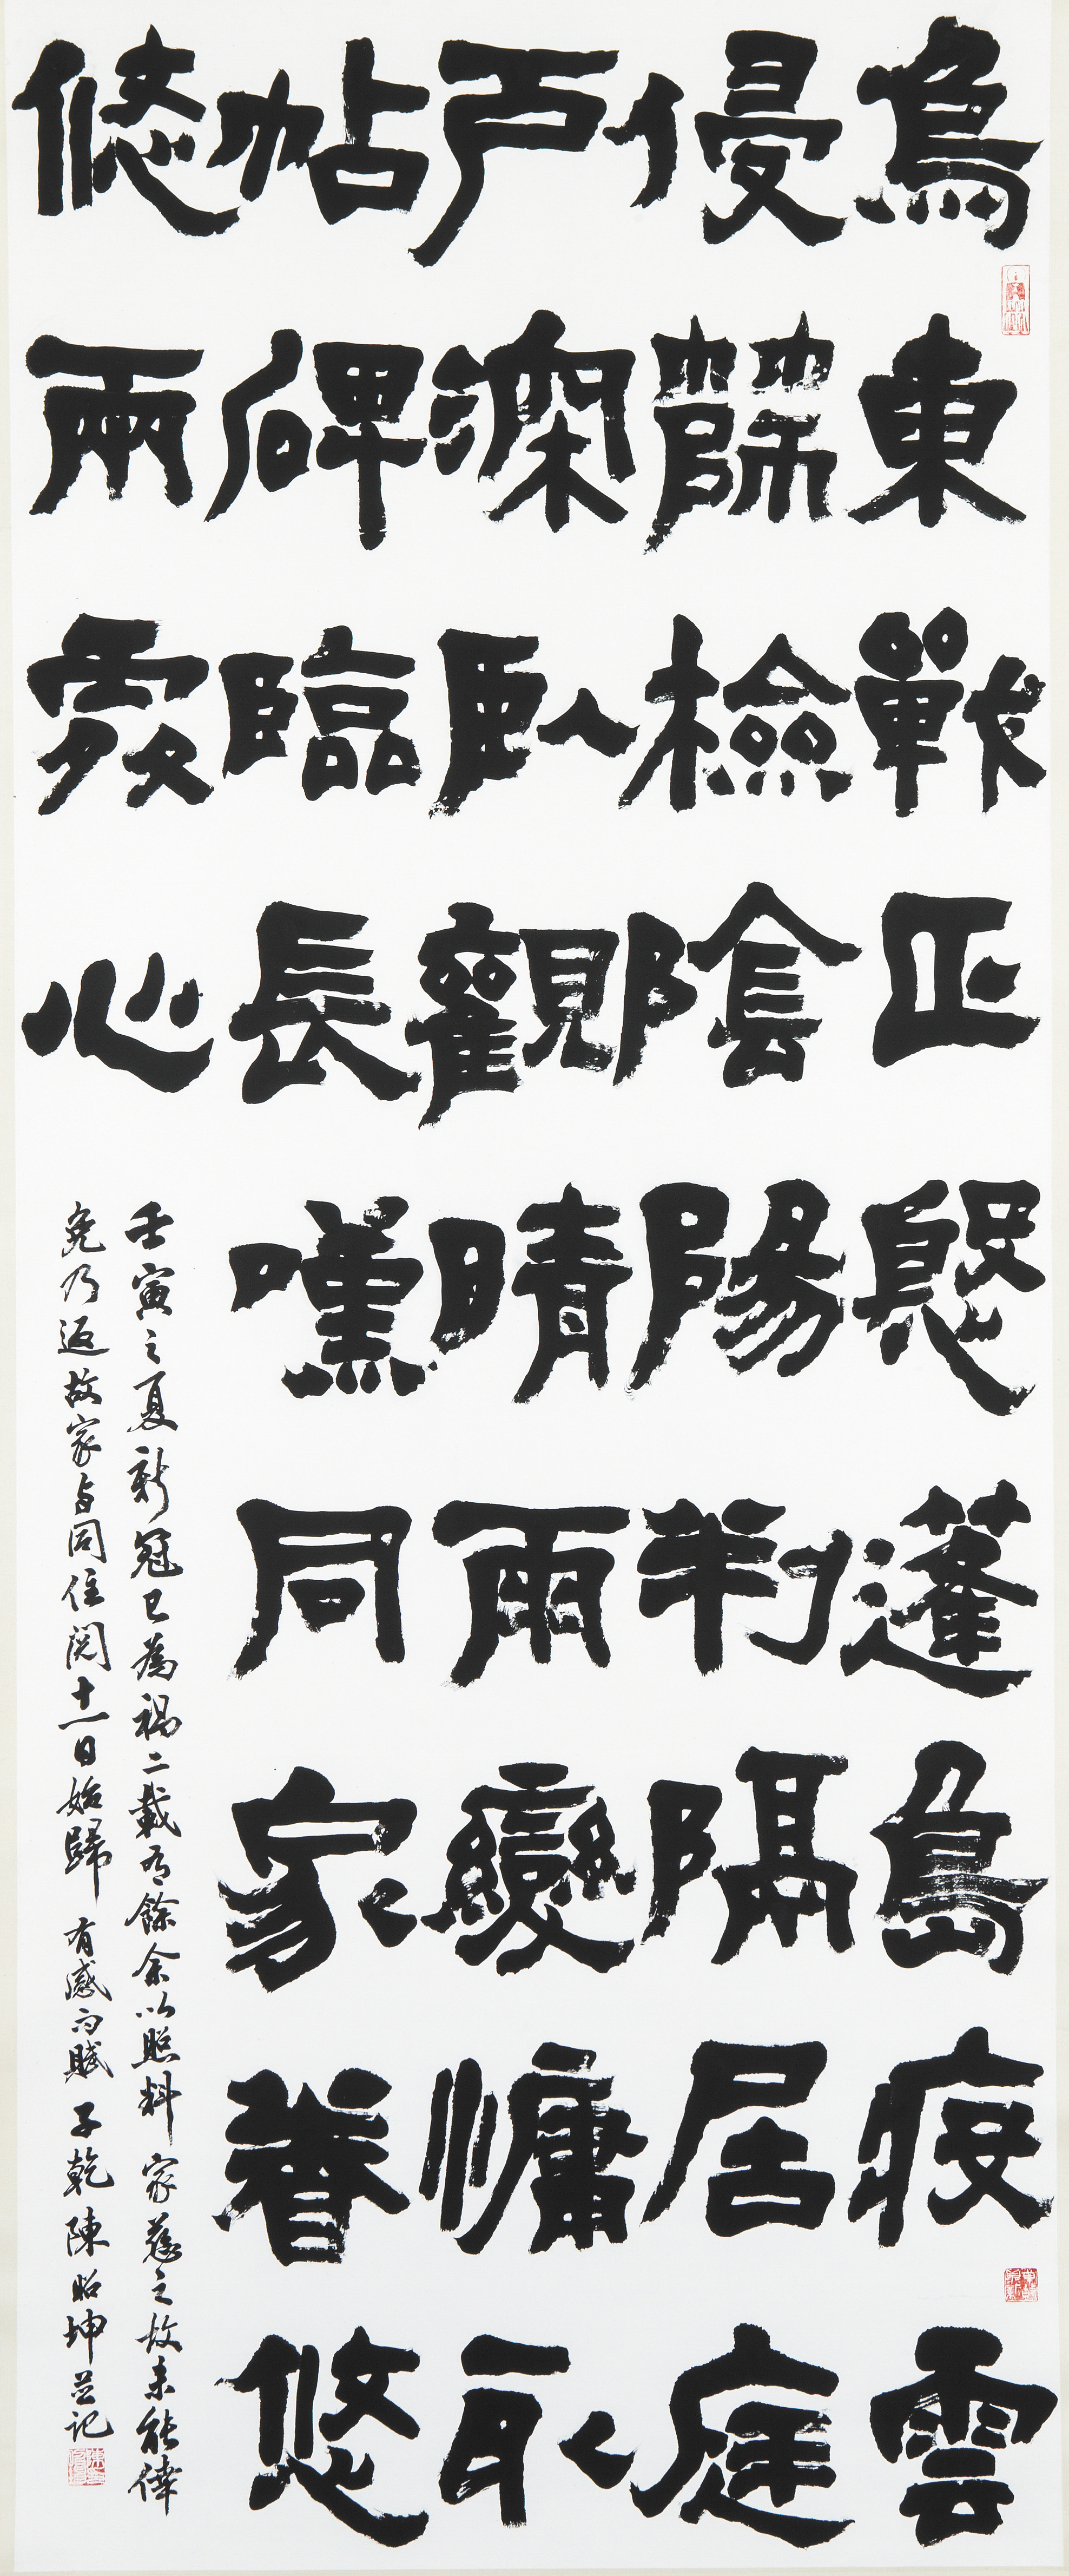 烏東戰正慇蓬島疫雲
侵篩檢陰陽判隔居庭
戶深臥觀晴雨變慵取
帖碑臨長嘆同家眷悠
悠兩處心
壬寅之夏新冠已為禍二載有餘余以照料家慈之故未能倖
免乃返故家与同住閱十一日始歸 有感而賦 子乾陳昭坤並記